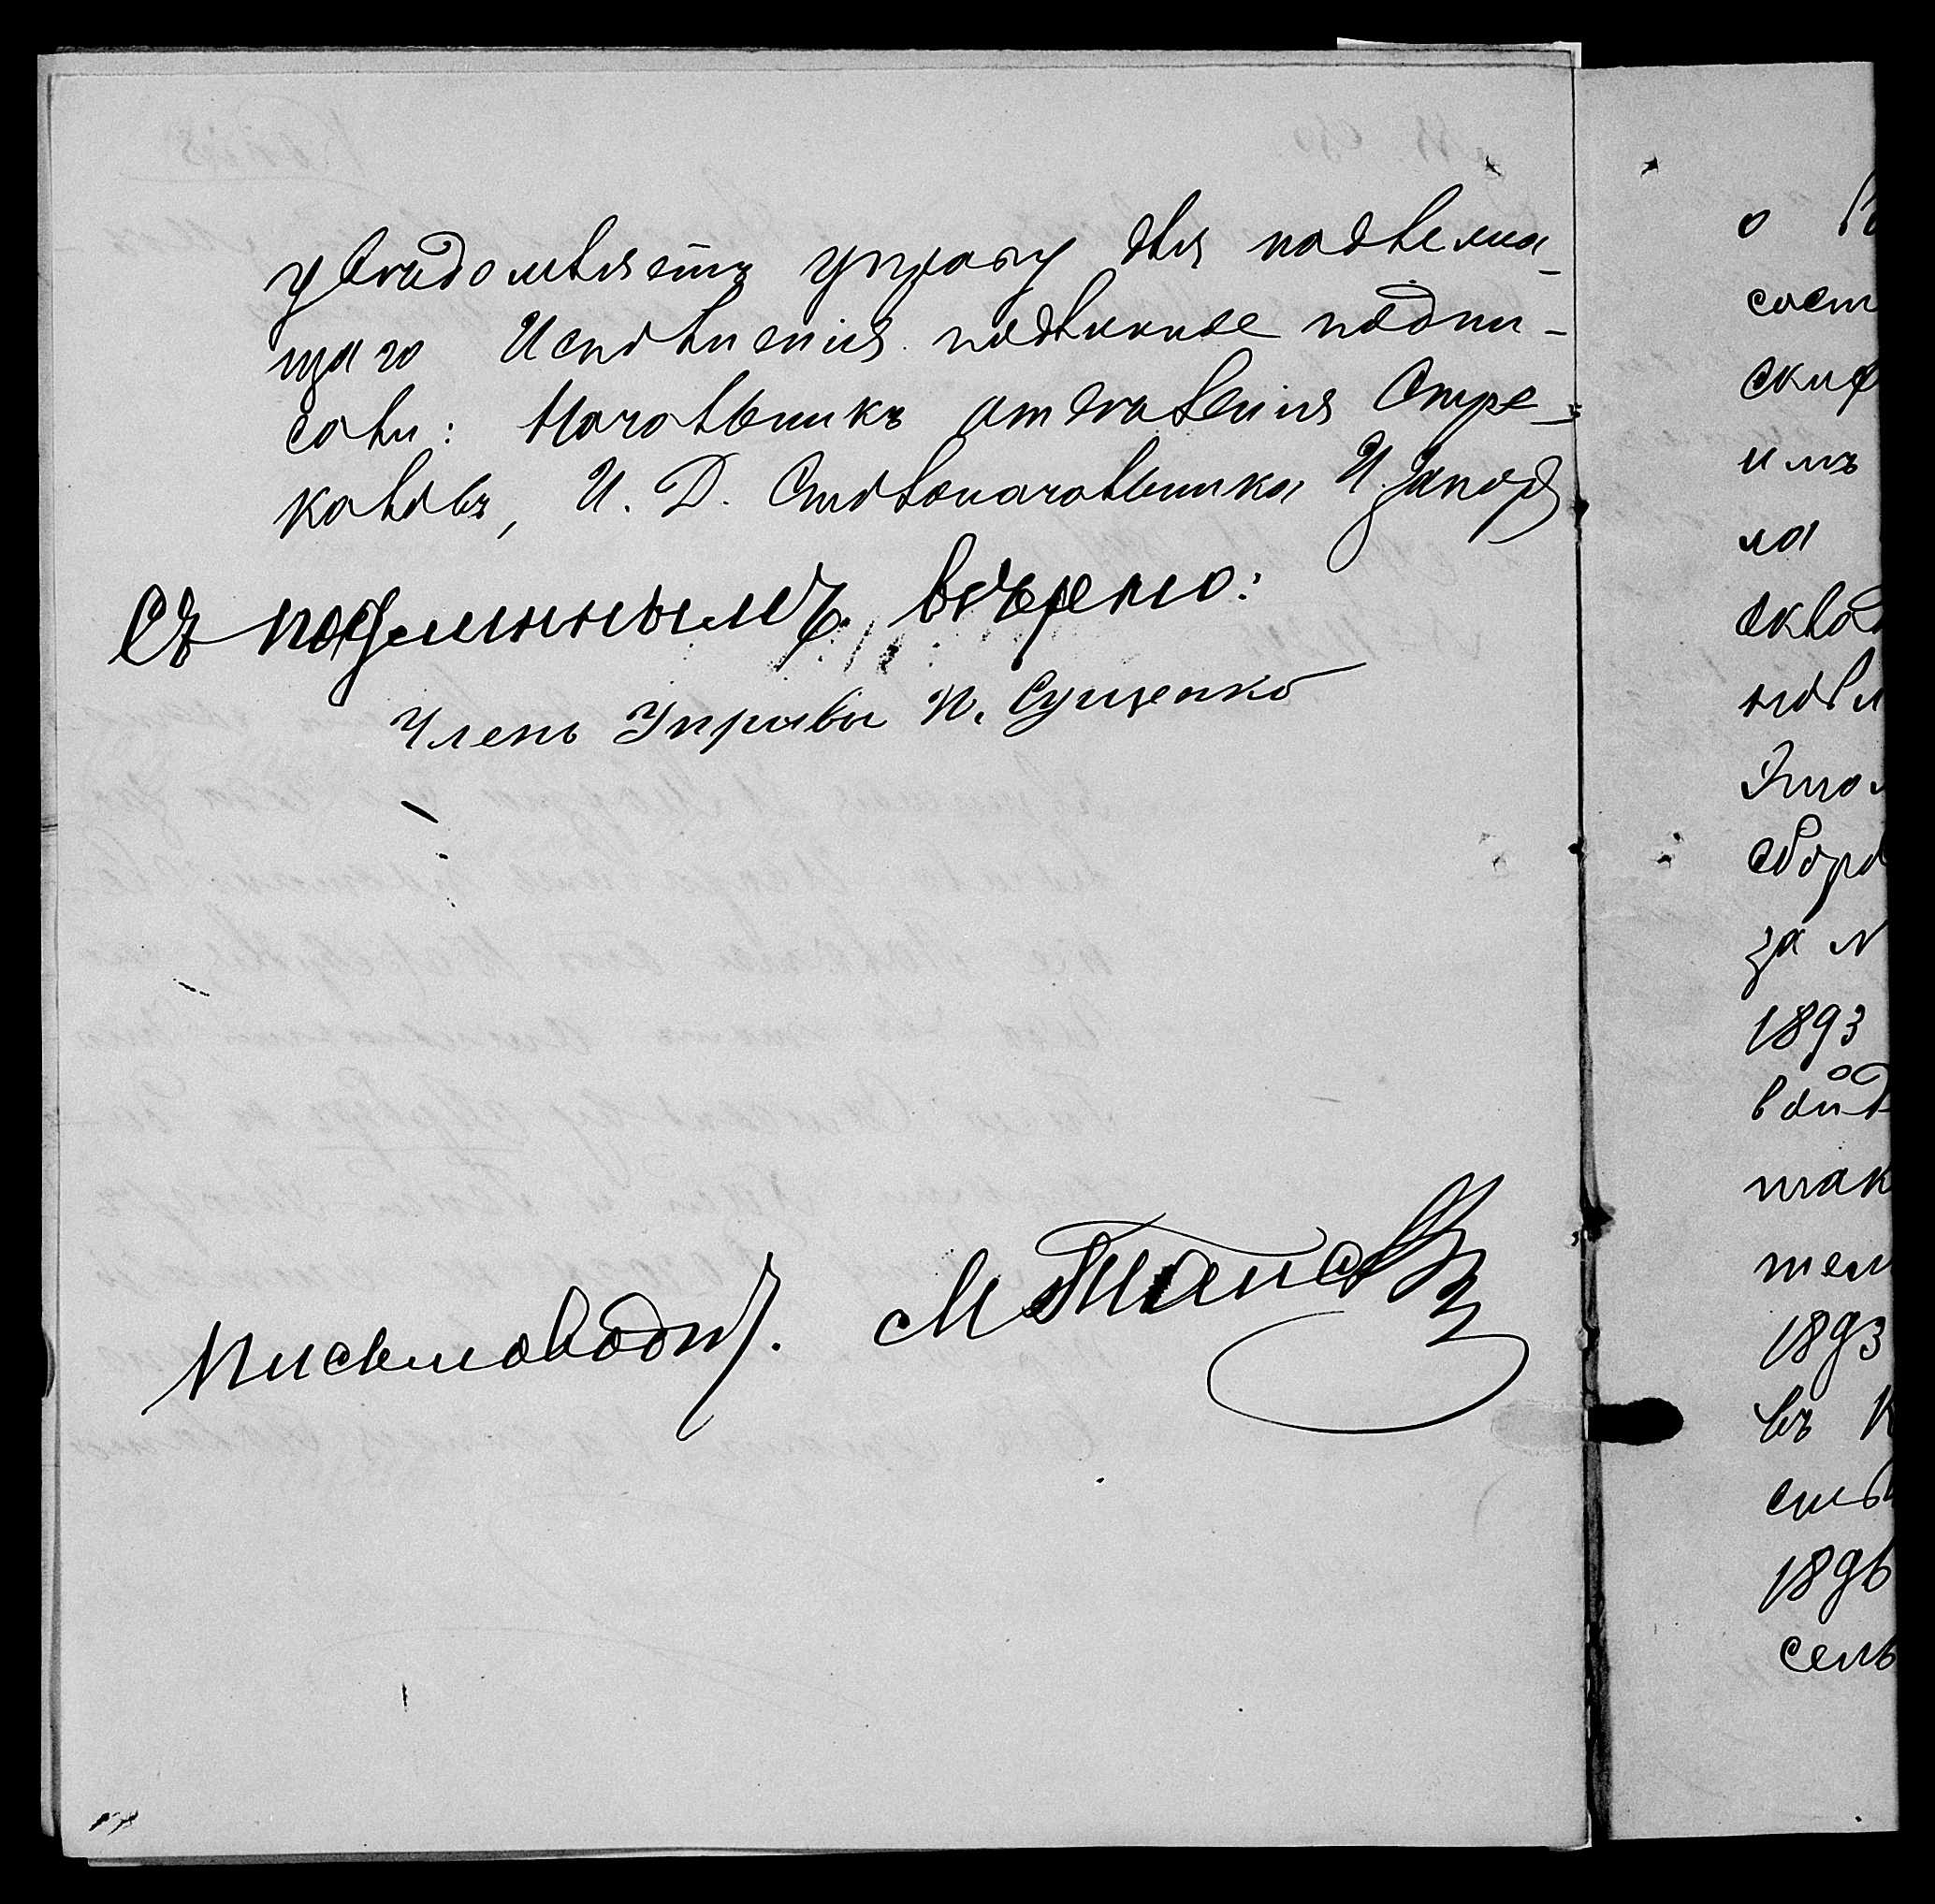 увѣдомляетъ управу для надлежа-
щаго Исполненія. подлинное подпи-
сали: Начальникъ отдѣленія Стре-
каловъ, И. Д. Столоначальника И.
Съ подлиннымъ вѣрно:
Членъ Управы И. Сущенко
Письмоводит.
о
сост
скиф
имъ
ла
оклад
новл
этом
сбор
за N
1893
войд
так
тел
1893
въ К
1896
сель